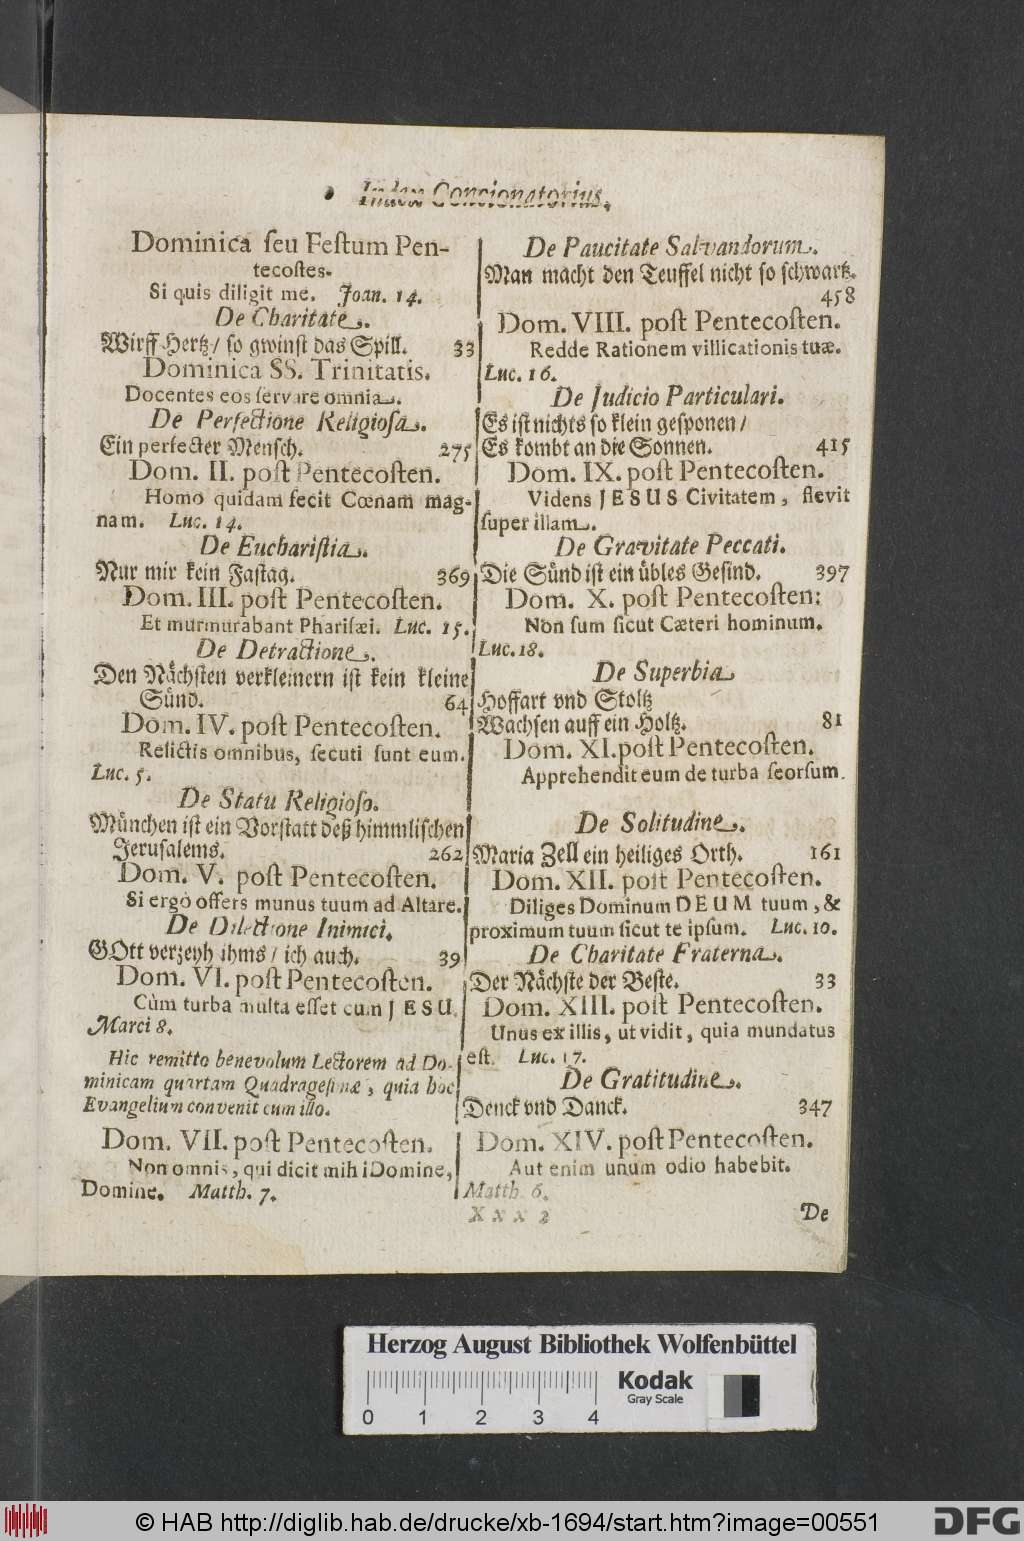 Index Concionatorius.
Dominica ſeu Feſtum Pen-
tecoſtes.
Si quis diligit me. Joan. 14.
De Charitate.
Wirff Hertz / ſo gwinſt das Spill. 33
Dominica SS. Trinitatis.
Docentes eos ſervare omnia.
De Perfectione Religioſa.
Ein perfecter Menſch. 275
Dom. II. poſt Pentecoſten.
Homo quidam fecit Cœnam mag-
nam. Luc. 14.
De Euchariſtia.
Nur mir kein Faſtag. 369
Dom. III. poſt Pentecoſten.
Et murmurabant Phariſæi. Luc. 15.
De Detractione.
Den Nächſten verkleinern iſt kein kleine
Sünd. 64
Dom. IV. poſt Pentecoſten.
Relictis omnibus, ſecuti ſunt eum.
Luc. 5.
De Statu Religioſo.
München iſt ein Vorſtatt deß himmliſchen
Jeruſalems. 262
Dom. V. poſt Pentecoſten.
Si ergò offers munus tuum ad Altare.
De Dilectione Inimici.
GOtt verzeyh ihms / ich auch. 39
Dom. VI. poſt Pentecoſten.
Cùm turba multa eſſet cum JESU.
Marci 8.
Hic remitto benevolum Lectorem ad Do-
minicam quartam Quadrageſimæ, quia hoc
Evangelium convenit cum illo.
Dom. VII. poſt Pentecoſten.
Non omnis, qui dicit mihi Domine,
Domine. Matth. 7.
De Paucitate Salvandorum.
Man macht den Teuffel nicht ſo ſchwartz.
458
Dom. VIII. poſt Pentecoſten.
Redde Rationem villicationis tuæ.
Luc. 16.
De Judicio Particulari.
Es iſt nichts ſo klein geſponen /
Es kombt an die Sonnen. 415
Dom. IX. poſt Pentecoſten.
Videns JESUS Civitatem, flevit
ſuper illam.
De Gravitate Peccati.
Die Sünd iſt ein übles Geſind. 397
Dom. X. poſt Pentecoſten:
Non ſum ſicut Cæteri hominum.
Luc. 18.
De Superbia
Hoffart vnd Stoltz
Wachſen auff ein Holtz. 81
Dom. XI. poſt Pentecoſten.
Apprehendit eum de turba ſeorſum.
De Solitudine.
Maria Zell ein heiliges Orth. 161
Dom. XII. poſt Pentecoſten.
Diliges Dominum DEUM tuum, &
proximum tuum ſicut te ipſum. Luc. 10.
De Charitate Fraterna.
Der Nächſte der Beſte. 33
Dom. XIII. poſt Pentecoſten.
Unus ex illis, ut vidit, quia mundatus
eſt. Luc. 17.
De Gratitudine.
Denck vnd Danck. 347
Dom. XIV. poſt Pentecoſten.
Aut enim unum odio habebit.
Matth. 6.
Xxx 2 De
Herzog August Bibliothek Wolfenbüttel
0 1 2 3 4
Kodak
Gray Scale
© HAB http://diglib.hab.de/drucke/xb-1694/start.htm?image=00551
DFG